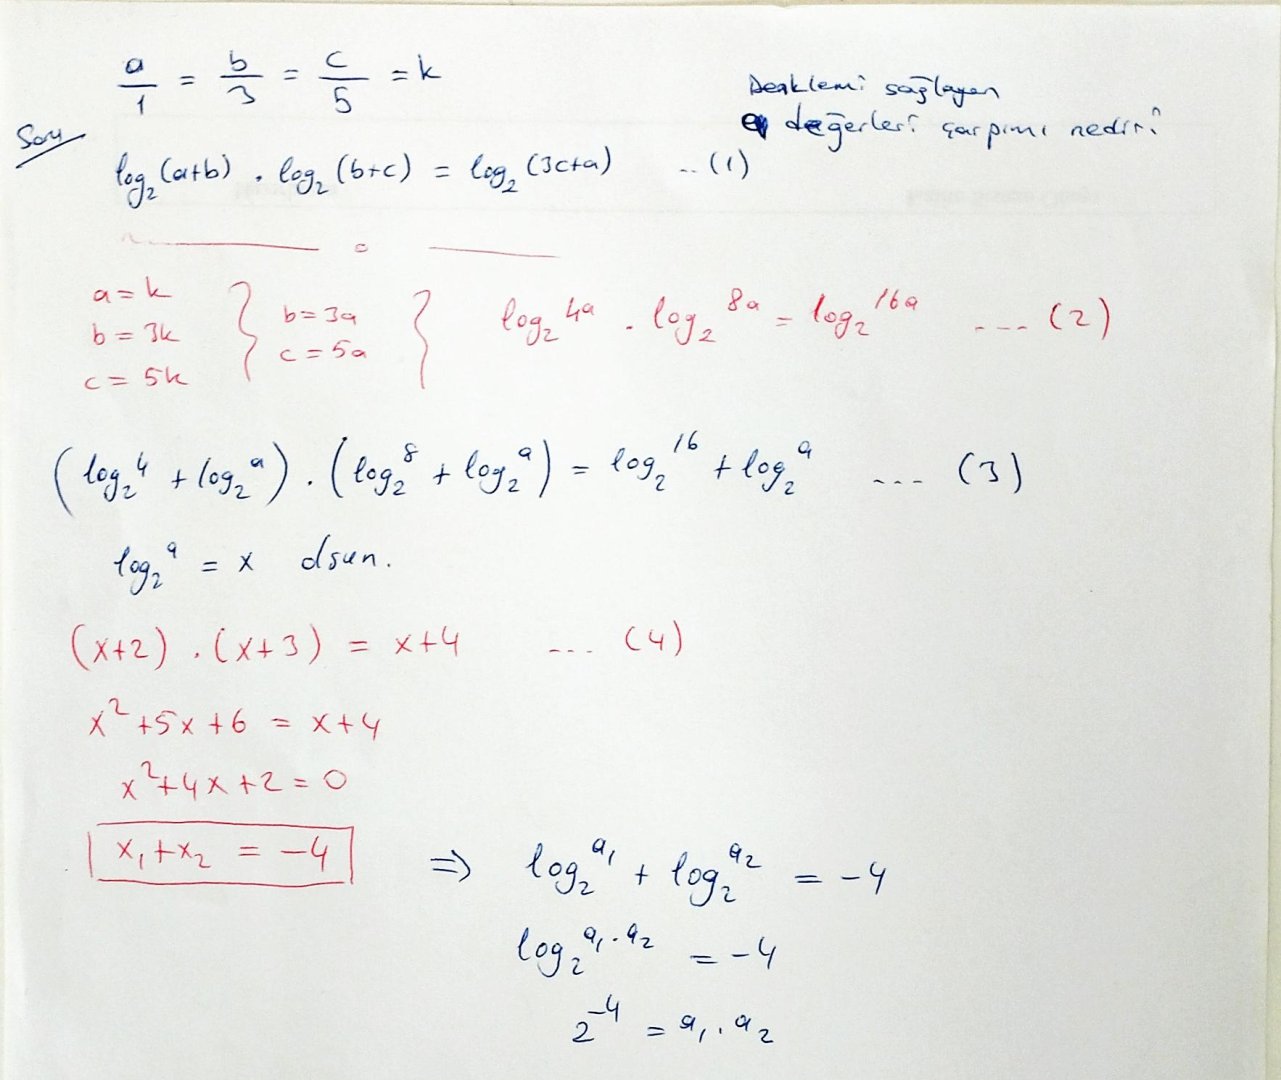 a/1 = b/3 = c/5 = k
Denklemi sağlayan
a değerleri çarpımı nedir?
Soru
log₂(a+b) . log₂(b+c) = log₂(3c+a) ..(1)
a = k
b = 3k
c = 5k
b = 3a
c = 5a
log₂4a . log₂8a = log₂16a ... (2)
(log₂4 + log₂a) . (log₂8 + log₂a) = log₂16 + log₂a ... (3)
log₂a = x olsun.
(x+2) . (x+3) = x+4 ... (4)
x²+5x+6 = x+4
x²+4x+2=0
x₁+x₂ = -4
⇒ log₂a₁ + log₂a₂ = -4
log₂a₁.a₂ = -4
2⁻⁴ = a₁.a₂